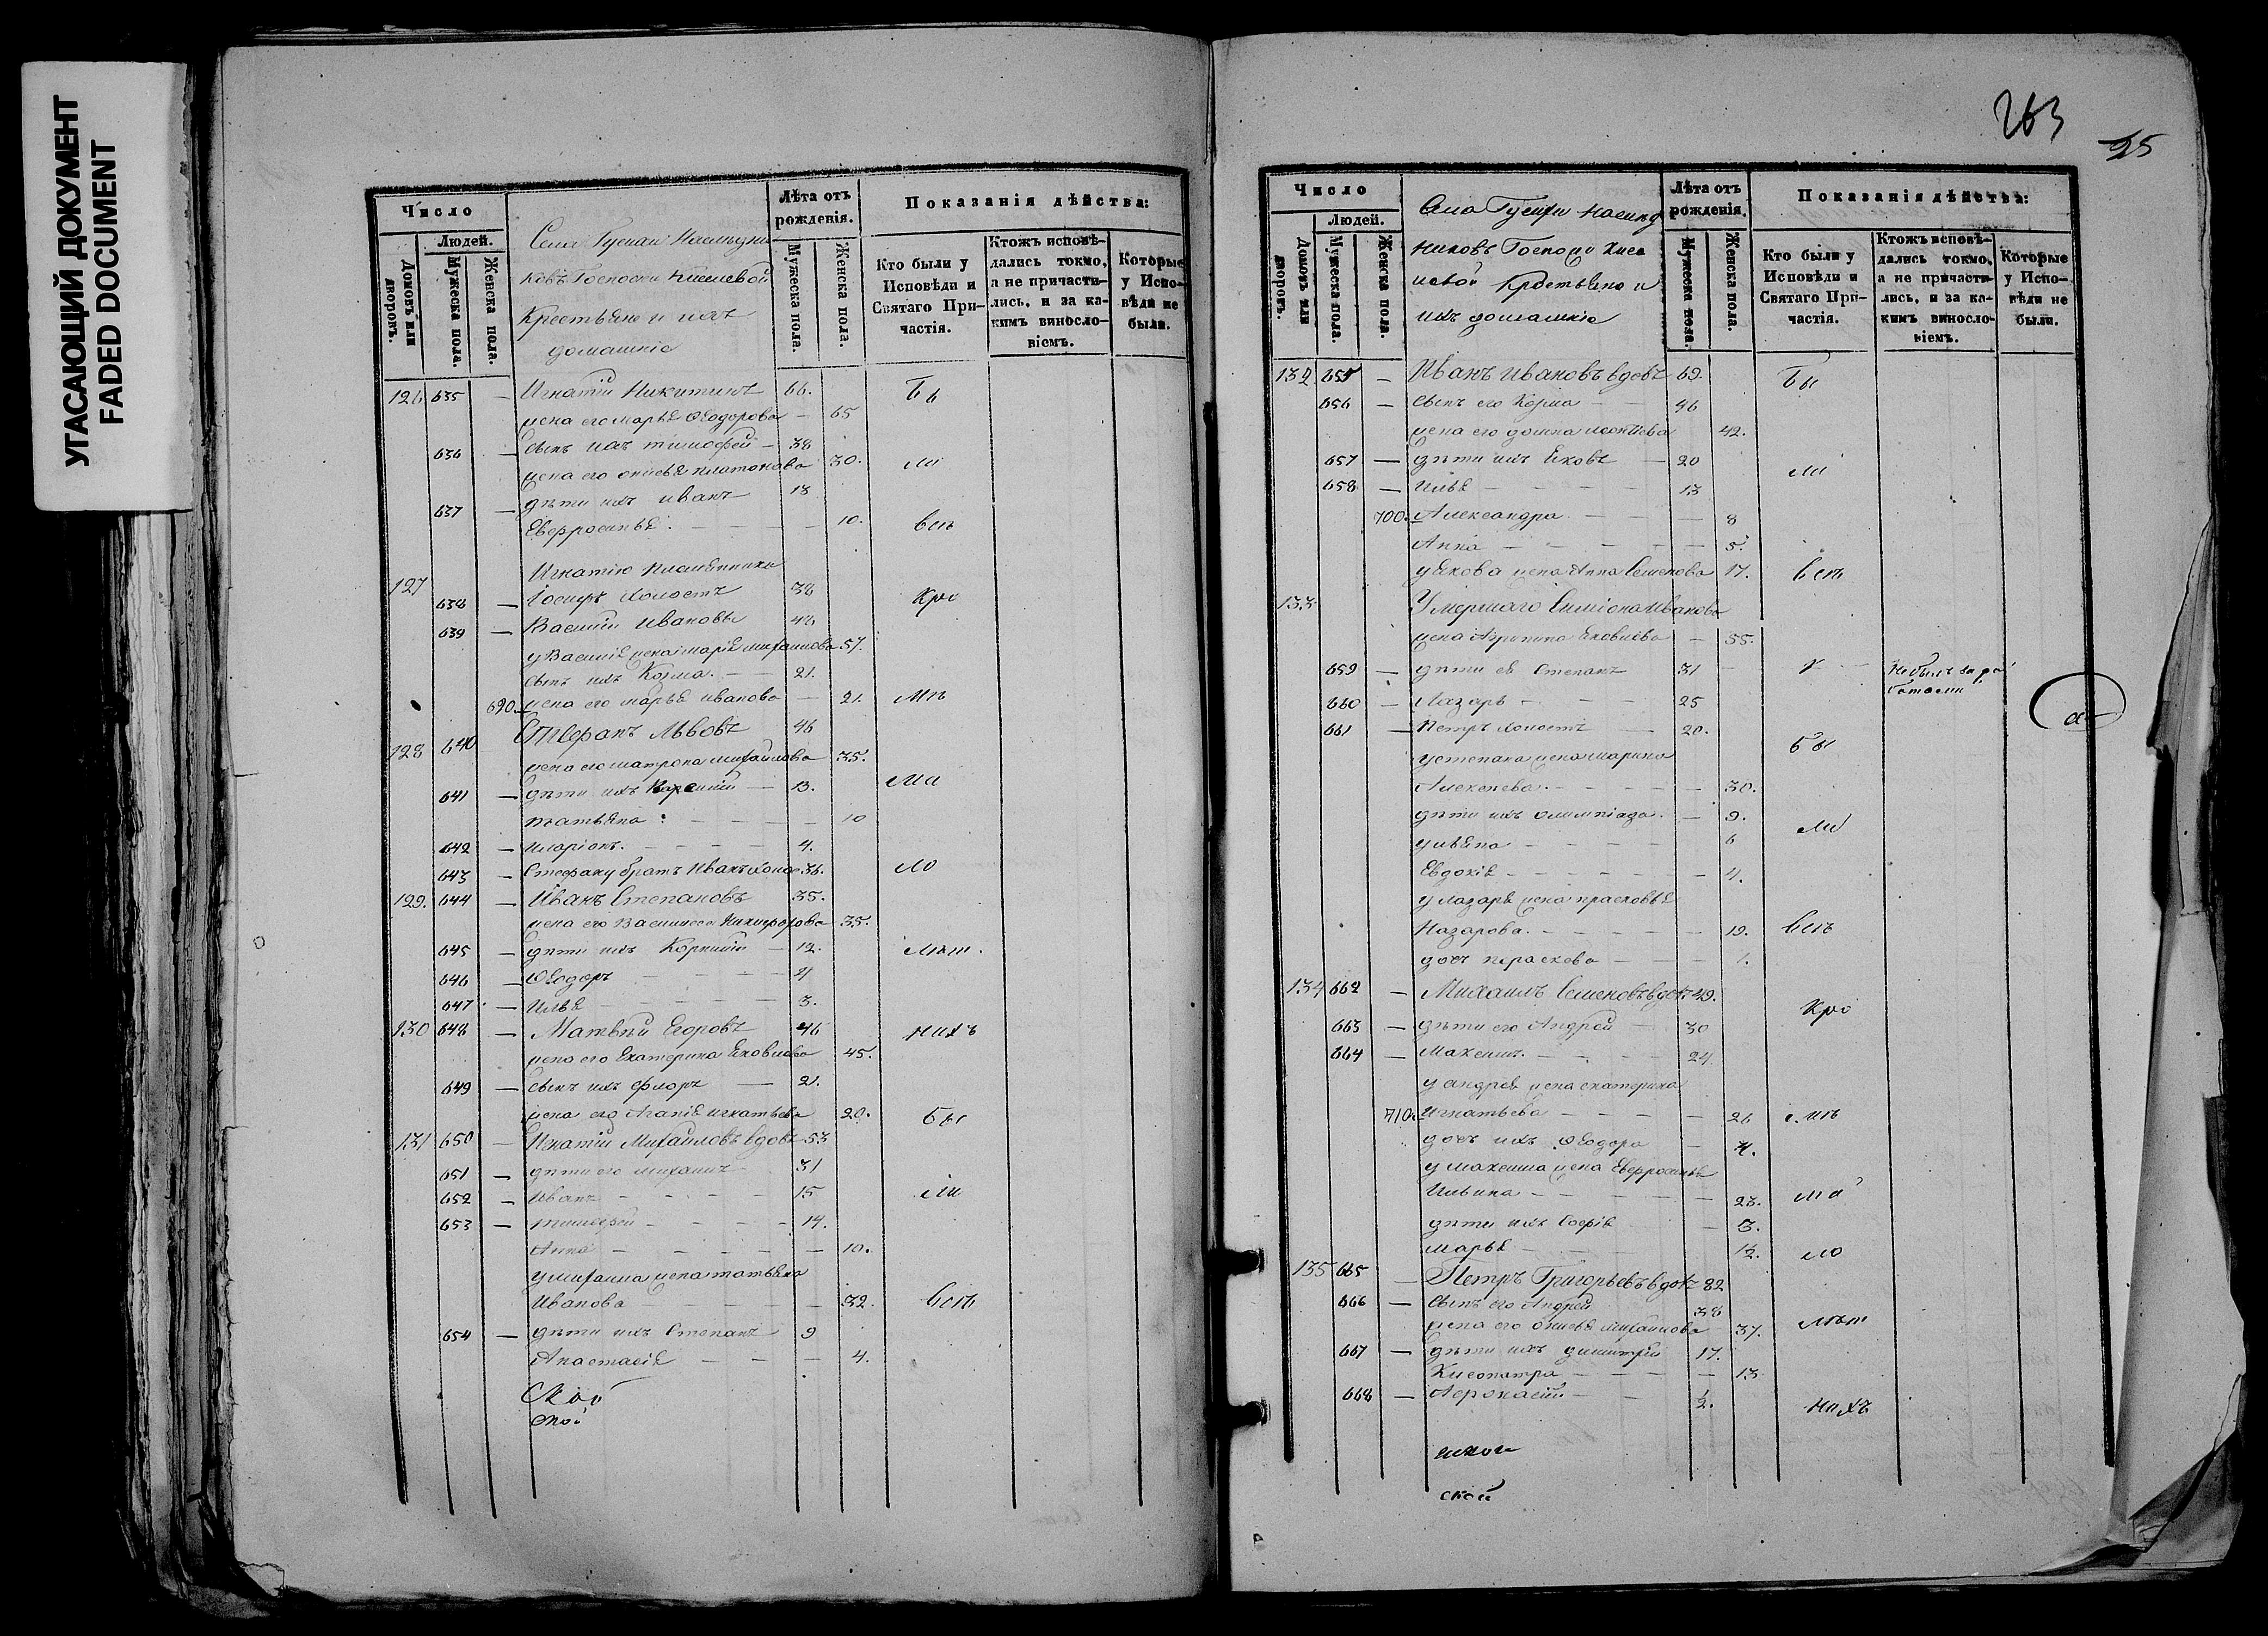 УГАСАЮЩИЙ ДОКУМЕНТ
FADED DOCUMENT
Число
Людей.
Домовъ или дворовъ.
Мужеска пола.
Женска пола.
Села
Крестьяне и ихъ
домашніе
Лѣта отъ рожденія.
Мужеска пола.
Женска пола.
Показанія дѣйства:
Кто были у Исповѣди и Святаго Причастія.
Ктожъ исповѣдались токмо, а не причастились, и за какимъ винословіемъ.
Которые у Исповѣди не были.
126 635 — Игнатій Никитинъ 66. Бы
жена его Марья Ѳеодорова — 65
636 — сынъ ихъ Тимофей — 38
жена его Платонова 30. ли
637 — дѣти ихъ Иванъ 13
— 10. всѣ
127 Игнатію племянники
638 — Іосифъ холостъ 38 Кро
639 — Василій Ивановъ 48
у Василія жена Марія Михайлова 57.
сынъ ихъ Козма. — 21.
690. — жена его Марья Иванова — 21. мѣ
128 640 Стефанъ Львовъ 46
жена его Матрона Михайлова 35.
641 — дѣти ихъ — 13. ма
Татьяна: — 10
642 — Иларіонъ. — 4.
643 — Стефану братъ Иванъ 36. ло
129. 644 — Иванъ Степановъ 35.
жена его Василисса Никифорова 35.
645 — дѣти ихъ Корнилій — 12. лѣт.
646 — Ѳеодоръ — 4
647 — Илья — 3.
130 648 — Матвѣй Егоровъ 46 нихъ
жена его Екатерина Яковлева 45.
649 — сынъ ихъ Флоръ — 21.
жена его Игнатьева 20. бы
131 650 — Игнатій Михайловъ вдовъ 53
651 — дѣти его Михаилъ 31
652 — Иванъ — 15 ли
653 — Тимофей — 14.
Анна — 10.
у Михаила жена Татьяна
Иванова — 32. всѣ
654 — дѣти ихъ Степанъ 9
Анастасія — 4.
263
25
Число
Людей.
Домовъ или дворовъ.
Мужеска пола.
Женска пола.
Села
никовъ
Крестьяне и
ихъ домашніе
Лѣта отъ рожденія.
Мужеска пола.
Женска пола.
Показанія дѣйства:
Кто были у Исповѣди и Святаго Причастія.
Ктожъ исповѣдались токмо, а не причастились, и за какимъ винословіемъ.
Которые у Исповѣди не были.
132 655 — Иванъ Ивановъ вдовъ 69. Бы
656 — сынъ его Козма — 46
жена его Домна Леонтіева 42.
657 — дѣти ихъ Яковъ — 20 ли
658 — Илья — 13
700. — Александра — 8
Анна — 5.
у Якова жена Анна Семенова 17. всѣ
133 Умершаго Симіона Иванова
жена Агрипина Яковлева — 55.
659 — дѣти ея Степанъ 31 —
660 — Лазарь — 25
661 — Петръ холостъ — 20.
у Степана жена Марина бы
Алексѣева. — 30.
дѣти ихъ Олимпіада. — 9. ли
Ульяна — 6
Евдокія — 4.
у Лазаря жена Прасковья
Назарова. — 19. всѣ
дочь Параскева — 1.
134 662 — Михаилъ Семеновъ вдовъ 49. Кро
663 — дѣти его Андрей — 30
664 — Максимъ. — 24
у Андрея жена Екатерина
710. Игнатьева — 26 мѣ
дочь ихъ Ѳеодора — 4.
у Максима жена
Ильина — 23. ма
дѣти ихъ Софія — 3.
Марья — 1/2. ло
135 665 — Петръ Григорьевъ вдовъ 82
666 — сынъ его Андрей 38
жена его Михайлова 37. лѣт
667 — дѣти ихъ Димитрій 17.
Клеопатра — 13
668 — Афонасій — 1/2. нихъ
ской